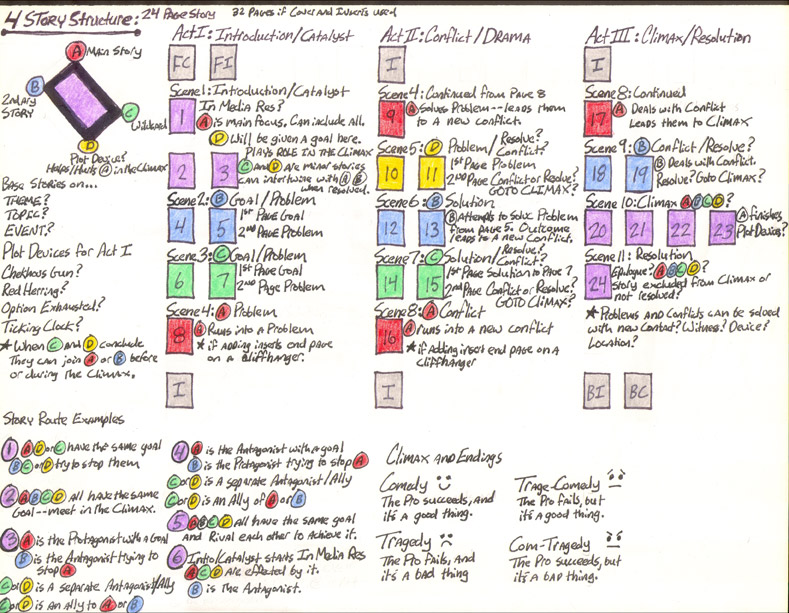 4 Story Structure: 24 Page Story 32 Pages if Cover and Inserts used
A Main Story
B
2ndary Story
C
Wildcard
D
Plot Device?
Helps/Hurts A in the Climax
Base Stories on...
Theme?
Topic?
Event?
Plot Devices for Act I
Chekhovs Gun?
Red Herring?
Option Exhausted?
Ticking Clock?
* When C and D conclude
They can join A or B before
or during the Climax.
Act I: Introduction/Catalyst
FC FI
Scene 1: Introduction/Catalyst
1 In Media Res?
A is main focus. Can include All.
D Will be given a goal here.
Plays role in the Climax
2 3 C and D are minor stories
can intertwine with A B
when resolved.
Scene 2: B Goal/Problem
4 5 1st Page Goal
2nd Page Problem
Scene 3: C Goal/Problem
6 7 1st Page Goal
2nd Page Problem
Scene 4: A Problem
8 A Runs into a Problem
* if adding inserts end page
on a cliffhanger.
I
Act II: Conflict/Drama
I
Scene 4: Continued from Page 8
9 A Solves Problem -- leads them
to a new conflict.
Scene 5: D Problem/Resolve?
Conflict?
10 11 1st Page Problem
2nd Page Conflict or Resolve?
GOTO CLIMAX?
Scene 6: B Solution
12 13 B Attempts to Solve Problem
from page 5. Outcome
leads to a new Conflict.
Scene 7: C Solution/Resolve?
Conflict?
14 15 1st Page Solution to Page 7
2nd Page Conflict or Resolve?
GOTO CLIMAX?
Scene 8: A Conflict
16 A runs into a new conflict
* if adding insert end page on a
cliffhanger
I
Act III: Climax/Resolution
I
Scene 8: Continued
17 A Deals with Conflict
Leads them to Climax
Scene 9: B Conflict/Resolve?
18 19 B Deals with Conflict.
Resolve? Goto Climax?
Scene 10: Climax A B C D?
20 21 22 23 A finishes
Plot Device?
Scene 11: Resolution
24 Epilogue: A B C D?
Story excluded from Climax or
not resolved?
* Problems and Conflicts can be solved
with new Contact? Witness? Device?
Location?
BI BC
Story Route Examples
1 A D or C have the same goal
B C or D try to stop them
2 A B C D all have the same
Goal -- meet in the Climax.
3 A is the Protagonist with a Goal
B is the Antagonist trying to
stop A
C or D is a separate Antagonist/Ally
C or D is an Ally to A or B
4 A is the Antagonist with a goal
B is the Protagonist trying to stop A
C or D is a separate Antagonist/Ally
C or D is an Ally of A or B
5 A B C D all have the same goal
and Rival each other to achieve it.
6 Intro/Catalyst starts In Media Res
A C D are effected by it.
B is the Antagonist.
Climax and Endings
Comedy
The Pro succeeds, and
it's a good thing.
Trage-Comedy
The Pro fails, but
it's a good thing.
Tragedy
The Pro Fails, and
it's a bad thing
Com-Tragedy
The Pro succeeds, but
it's a bad thing.